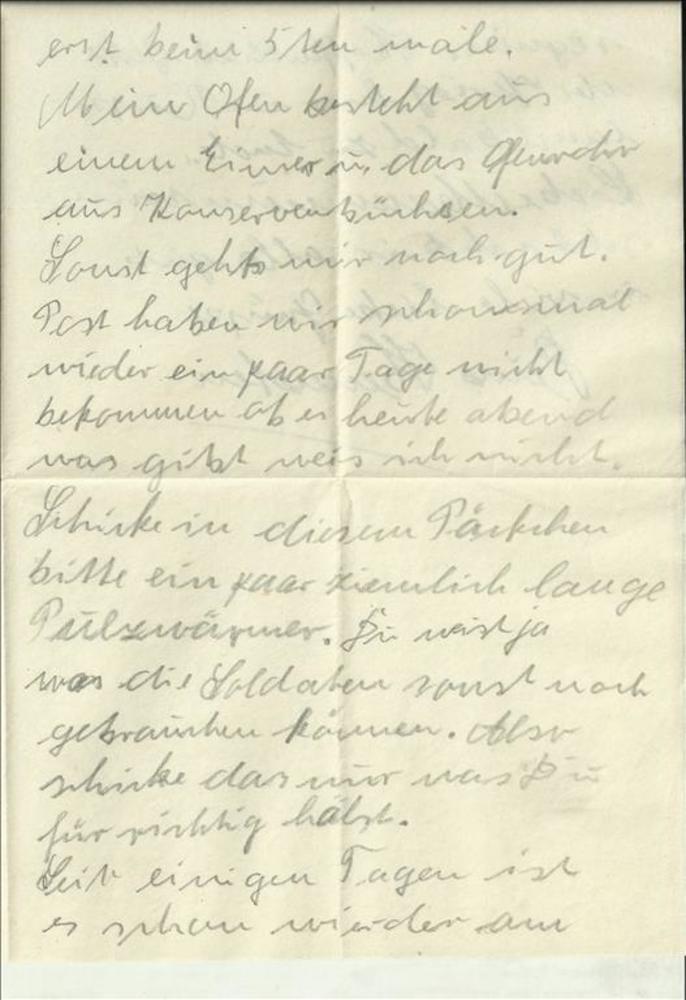 erst beim 5ten male.
Mein Ofen besteht aus
einem Eimer u. das Ofenrohr
aus Konservenbüchsen.
Sonst gehts mir noch gut.
Post haben wir schon
wieder ein paar Tage nicht
bekommen ob es heute abend
was gibt weis ich nicht.
Schicke in diesem Päckchen
bitte ein paar ziemlich lange
Pulzwärmer. Du wist ja
was die Soldaten sonst noch
gebrauchen können. Also
schicke das nur was Du
für richtig hälst.
Seit einigen Tagen ist
es schon wieder am